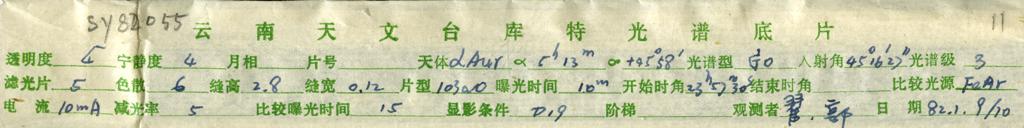 SY82055
云南天文台库特光谱底片 11
透明度 4 宁静度 4 月相 片号 天体 αAur α 5h 13m α +45°58′ 光谱型 G0 入射角 45°16′27″ 光谱级 3
滤光片 5 色散 6 缝高 2.8 缝宽 0.12 片型 103aO 曝光时间 10m 开始时角 23h57m30s 结束时角 比较光源 FeAr
电流 10mA 减光率 5 比较曝光时间 15 显影条件 D19 阶梯 观测者 翟.郭 日期 82.1.9/10